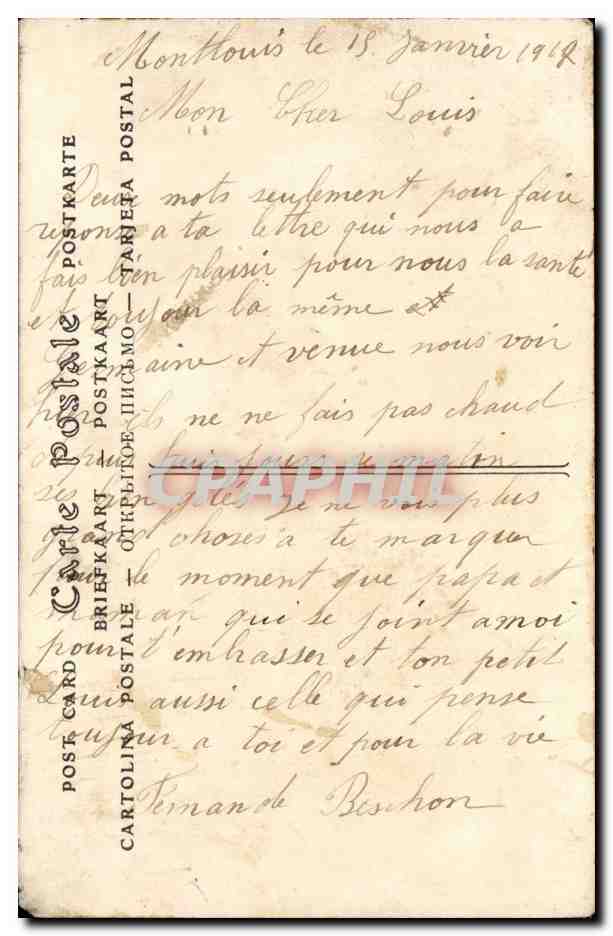 Montlouis le 15 Janvier 191
Mon Cher Louis
Deux mots seulement pour faire
reponse a ta lettre qui nous a
fais bien plaisir pour nous la santé
et toujour la même et
Germaine et venue nous voir
hier ne ne fais pas chaud
depui huit jours ce matin
ses bien gélés Je ne vois plus
grand choses a te marquer
pour le moment que papa et
maman qui se joint a moi
pour t'embrasser et ton petit
Loui aussi celle qui pense
toujour a toi et pour la vie
Fernande Beschon
Carte Postale
POST CARD
POSTKARTE
BRIEFKAART — POSTKAART
CARTOLINA POSTALE — ОТКРЫТОЕ ПИСЬМО — TARJETA POSTAL
CPAPHIL